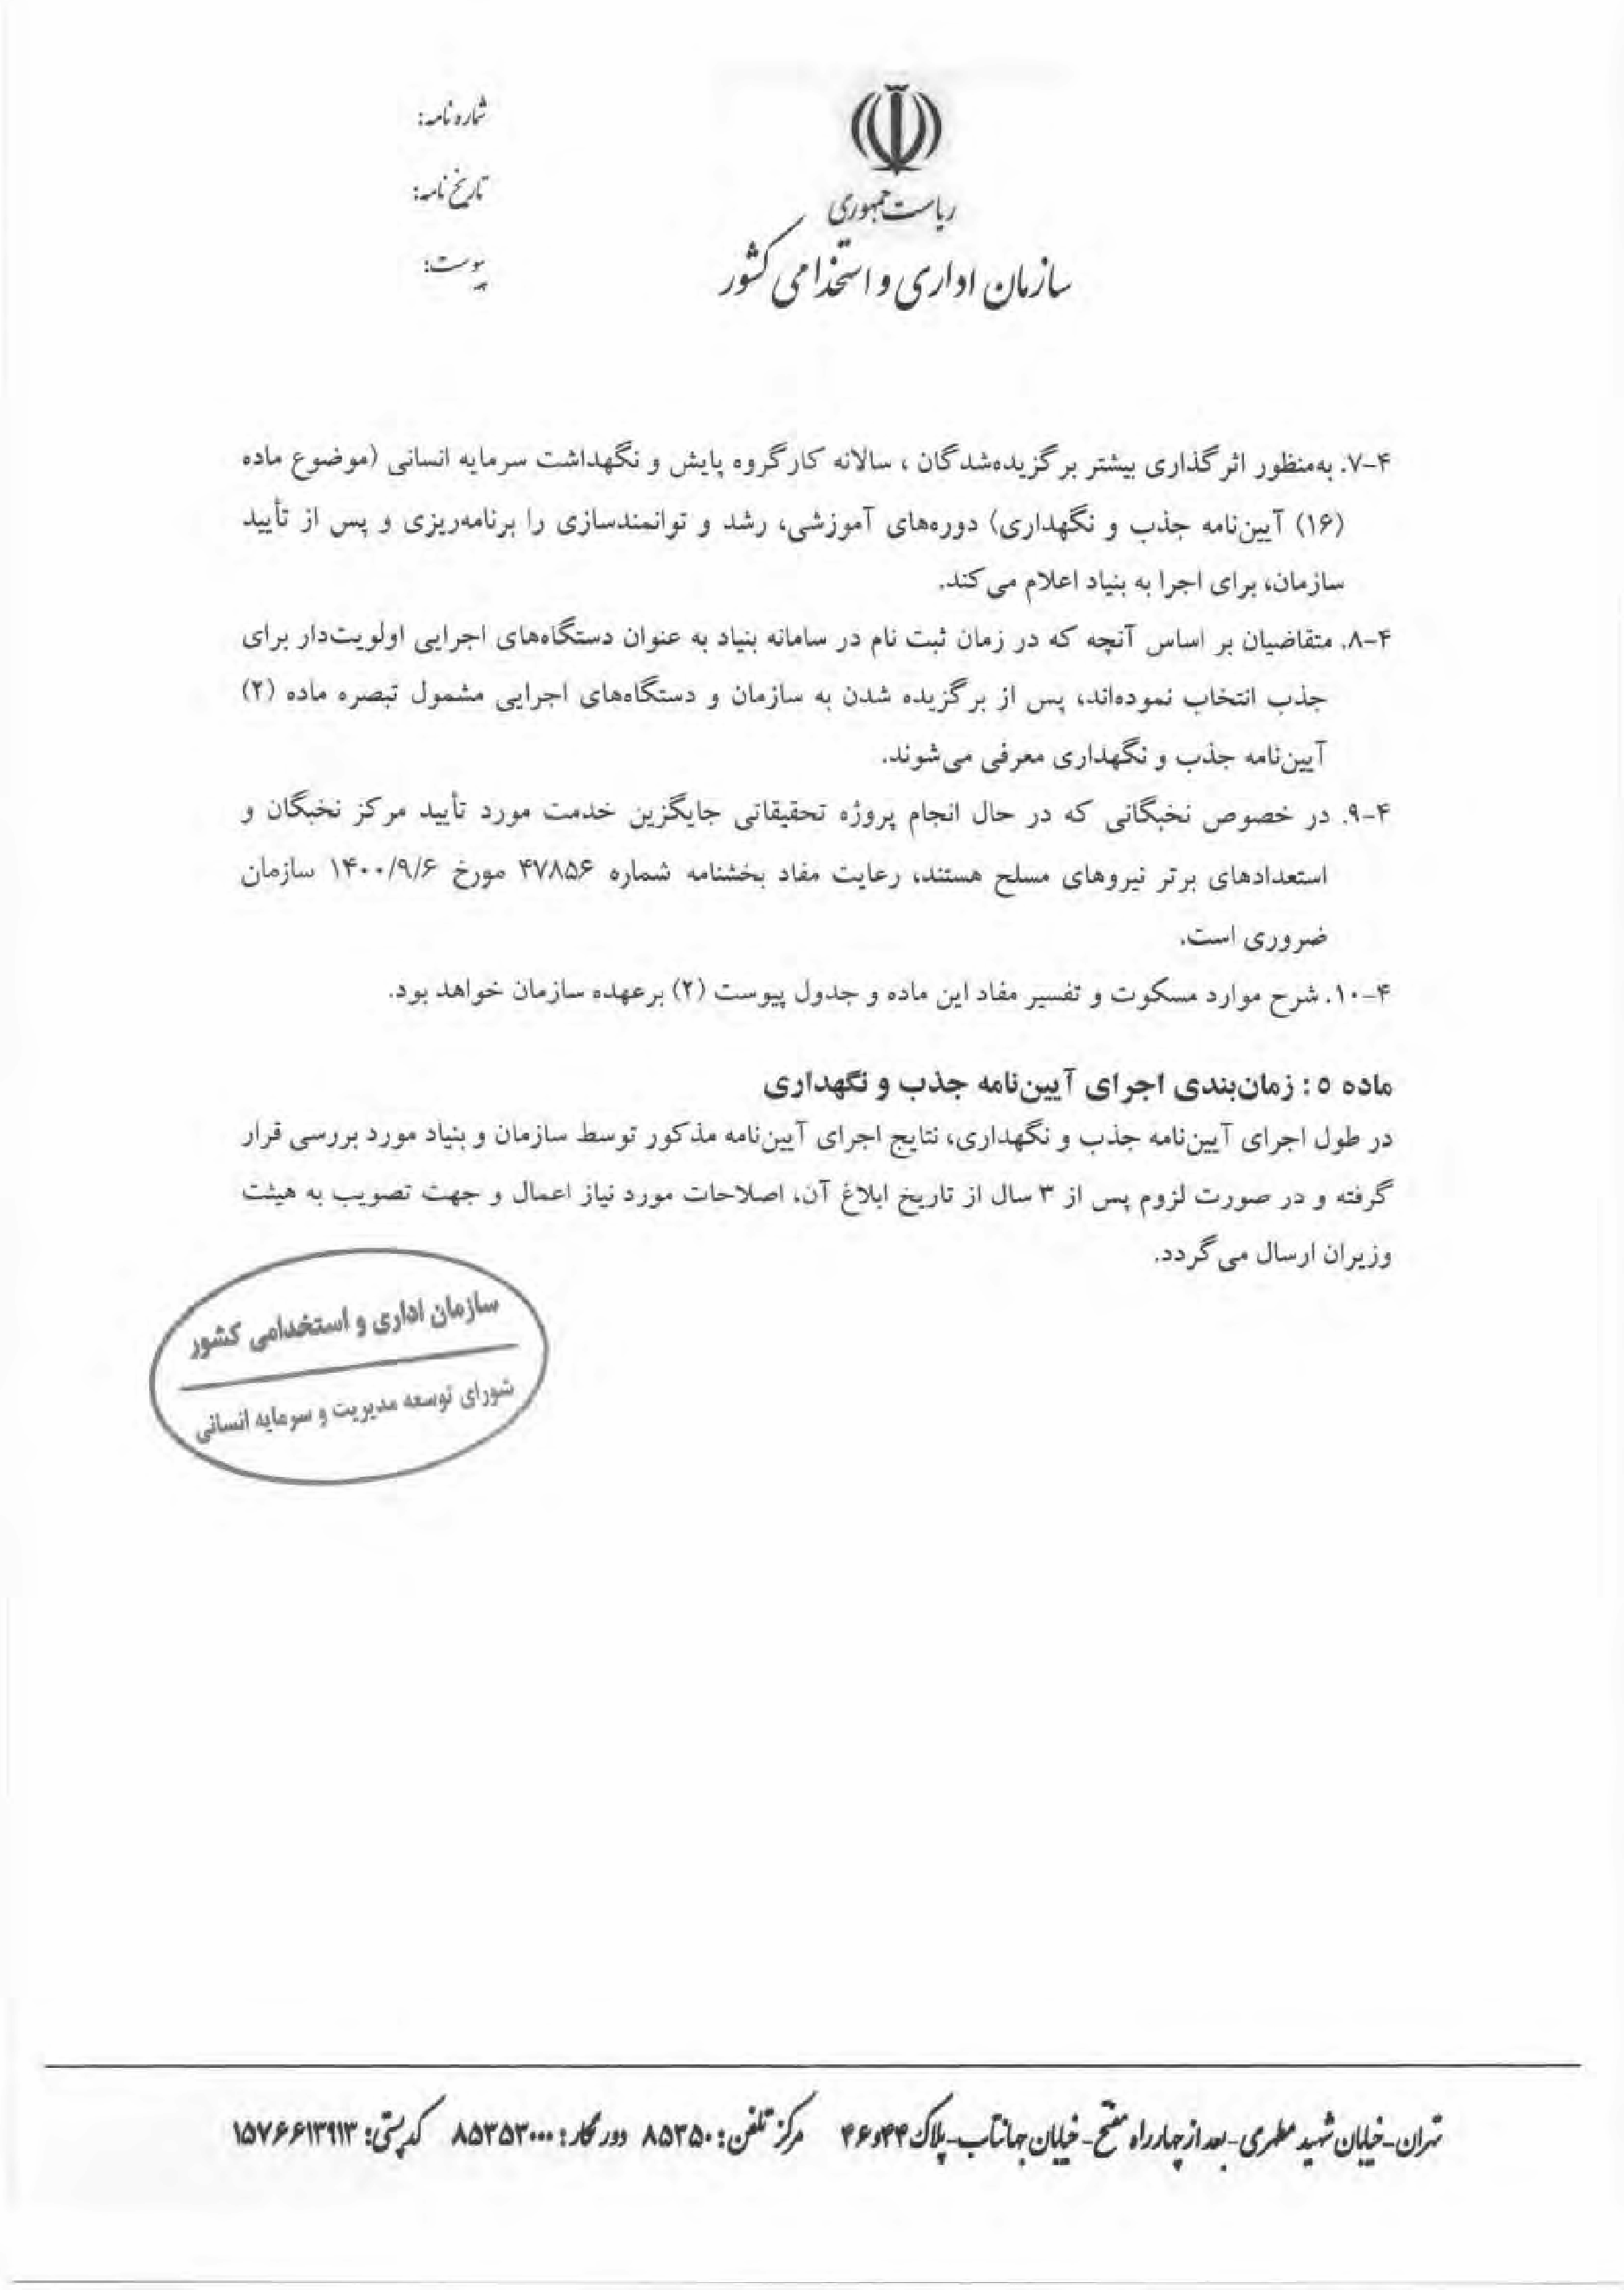 ریاست جمهوری
سازمان اداری و استخدامی کشور
شماره نامه:
تاریخ نامه:
پیوست:
۴-۷. به‌منظور اثرگذاری بیشتر برگزیده‌شدگان ، سالانه کارگروه پایش و نگهداشت سرمایه انسانی (موضوع ماده
(۱۶) آیین‌نامه جذب و نگهداری) دوره‌های آموزشی، رشد و توانمندسازی را برنامه‌ریزی و پس از تأیید
سازمان، برای اجرا به بنیاد اعلام می‌کند.
۴-۸. متقاضیان بر اساس آنچه که در زمان ثبت نام در سامانه بنیاد به عنوان دستگاه‌های اجرایی اولویت‌دار برای
جذب انتخاب نموده‌اند، پس از برگزیده شدن به سازمان و دستگاه‌های اجرایی مشمول تبصره ماده (۲)
آیین‌نامه جذب و نگهداری معرفی می‌شوند.
۴-۹. در خصوص نخبگانی که در حال انجام پروژه تحقیقاتی جایگزین خدمت مورد تأیید مرکز نخبگان و
استعدادهای برتر نیروهای مسلح هستند، رعایت مفاد بخشنامه شماره ۴۷۸۵۶ مورخ ۱۴۰۰/۹/۶ سازمان
ضروری است.
۴-۱۰. شرح موارد مسکوت و تفسیر مفاد این ماده و جدول پیوست (۲) برعهده سازمان خواهد بود.
ماده ۵: زمان‌بندی اجرای آیین‌نامه جذب و نگهداری
در طول اجرای آیین‌نامه جذب و نگهداری، نتایج اجرای آیین‌نامه مذکور توسط سازمان و بنیاد مورد بررسی قرار
گرفته و در صورت لزوم پس از ۳ سال از تاریخ ابلاغ آن، اصلاحات مورد نیاز اعمال و جهت تصویب به هیئت
وزیران ارسال می‌گردد.
سازمان اداری و استخدامی کشور
شورای توسعه مدیریت و سرمایه انسانی
تهران-خیابان شهید مطهری-بعد از چهارراه مفتح-خیابان جهانتاب-پلاک ۴۴و۴۶ مرکز تلفن: ۸۵۳۵۰ دورنگار: ۸۵۳۵۳۰۰۰ کدپستی: ۱۵۷۶۶۱۳۹۱۳